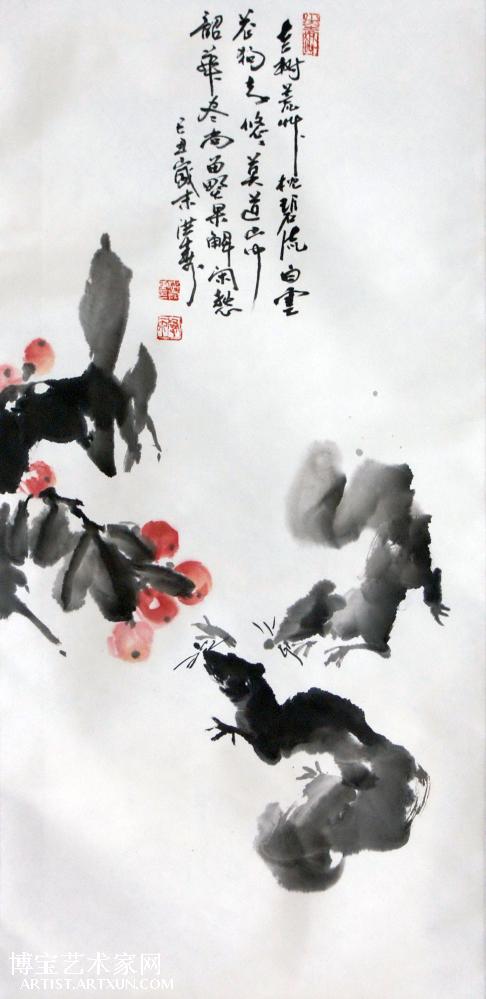 树荒艸枕碧流白雲
苍狗去悠悠莫道山中
韶華尽尚留野果解闲愁
己丑歲末洪寿
博宝艺术家网
ARTIST.ARTXUN.COM